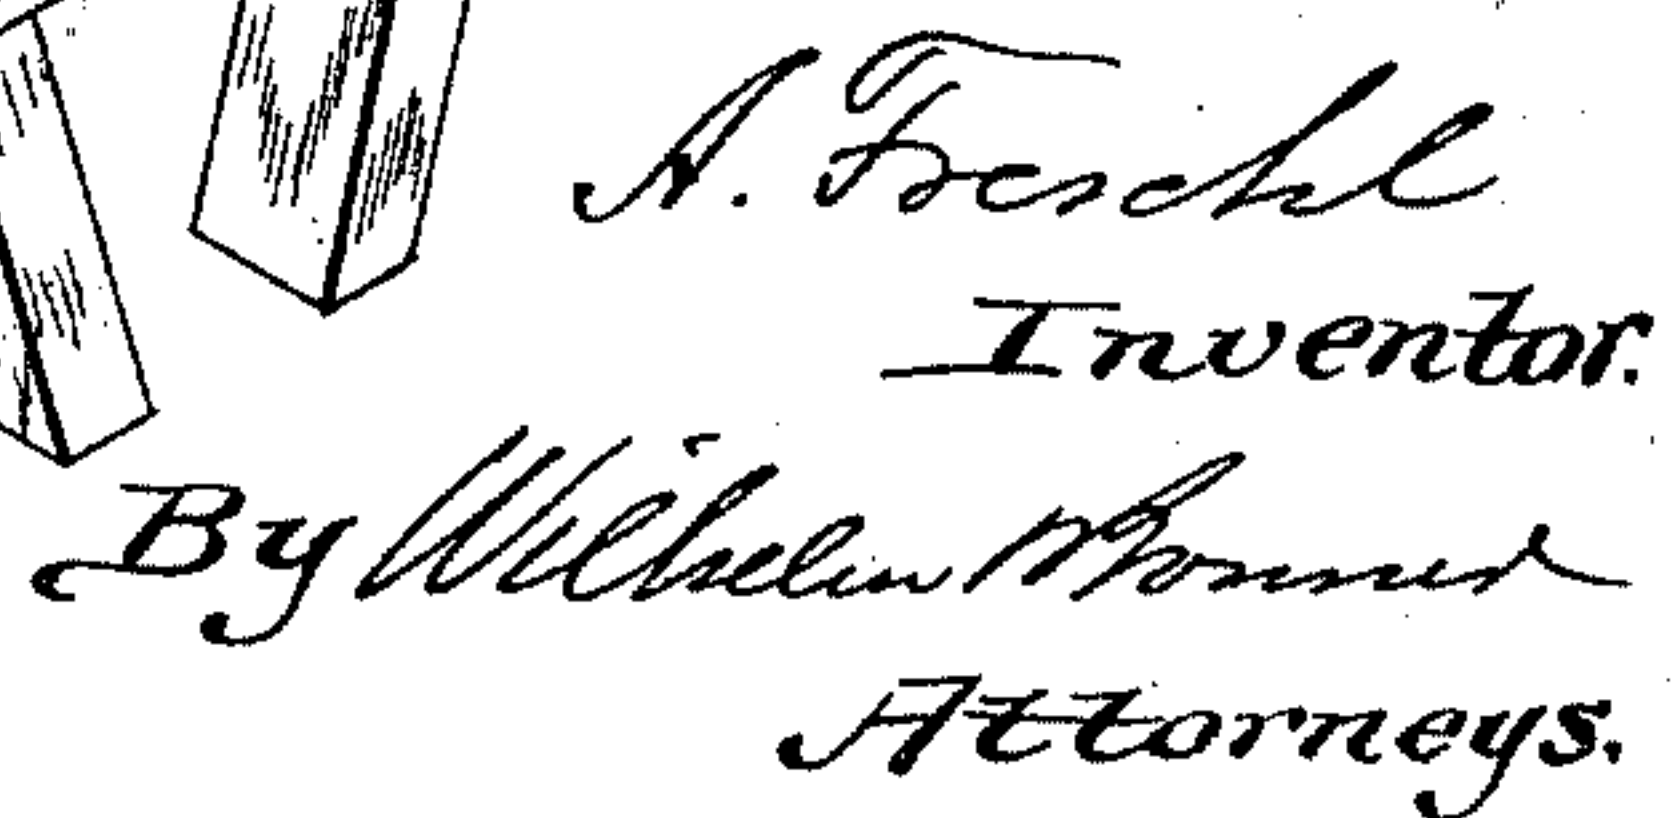 A. Freschl
Inventor.
By Wilhelm & Bonner
Attorneys.